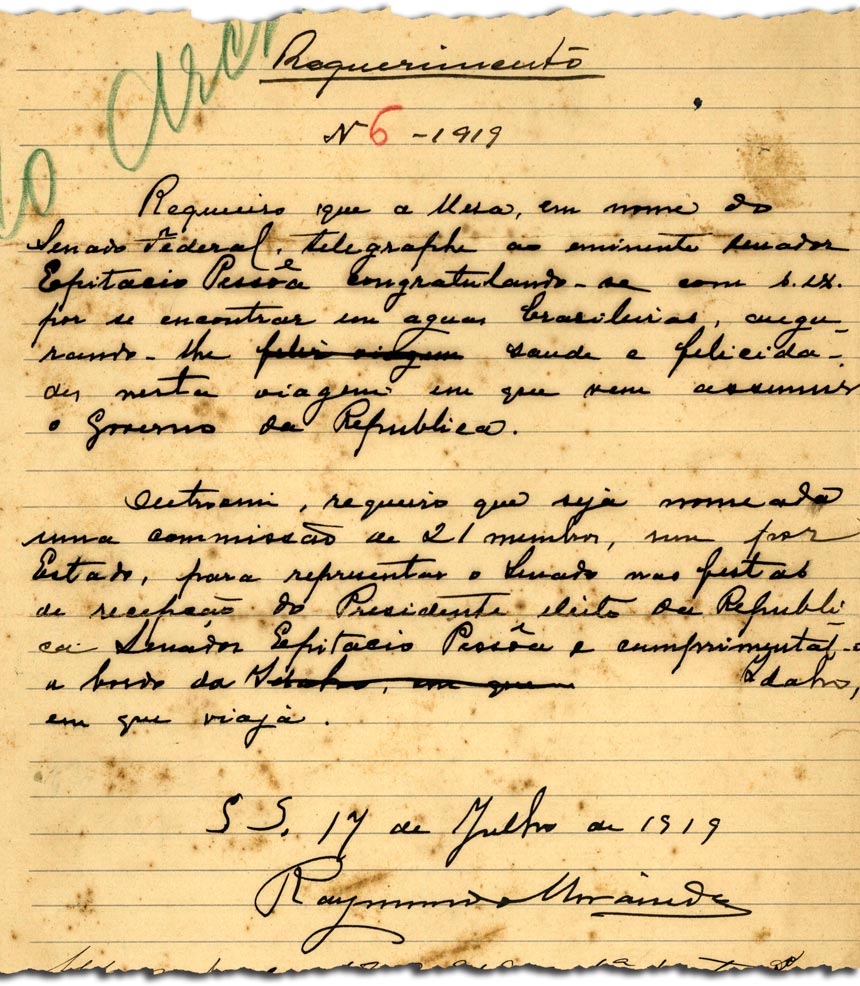 Ao Arc
Requerimento
N 6 - 1919
Requeiro que a Mesa, em nome do
Senado Federal, telegraphe ao eminente senador
Epitacio Pessôa congratulando-se com s. ex.
por se encontrar em aguas brasileiras, augu-
rando-lhe feliz viagem saude e felicida-
des nesta viagem em que vem assumir
o Governo da Republica.
Outrosim, requeiro que seja nomeada
uma commissão de 21 membros, um por
Estado, para representar o Senado nas festas
de recepção do Presidente eleito da Republi
ca Senador Epitacio Pessôa e cumprimental-o
a bordo do Idaho, em que Idaho,
em que viaja.
S S, 17 de Julho de 1919
Raymundo Miranda